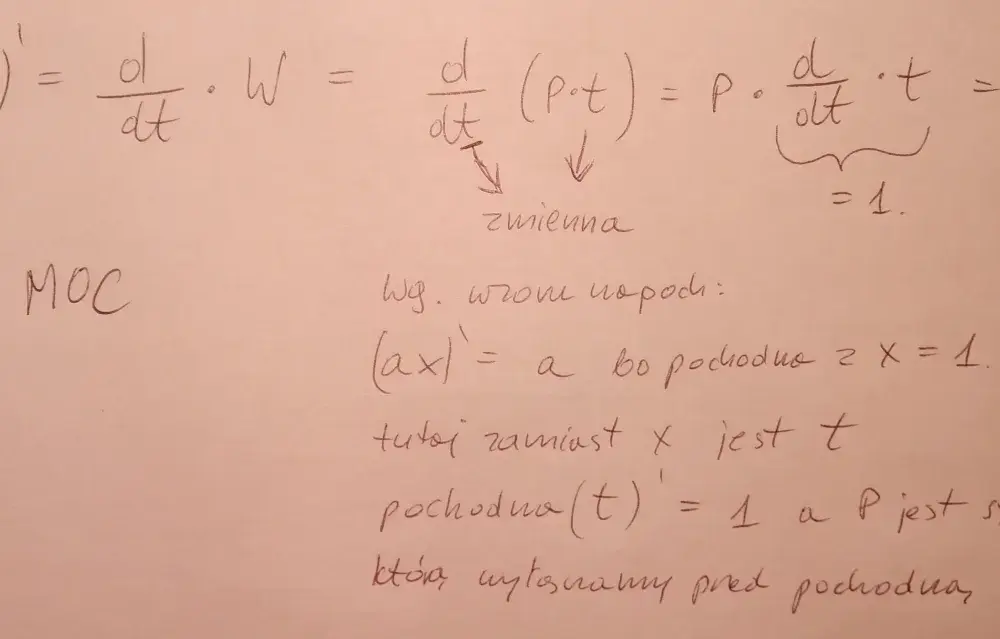 )' = d/dt · W = d/dt (P·t) = P · d/dt · t =
= 1.
zmienna
MOC
Wg. wzoru na poch:
(ax)' = a bo pochodna z x = 1.
tutaj zamiast x jest t
pochodna (t)' = 1 a P jest
którą wyłączamy pred pochodną